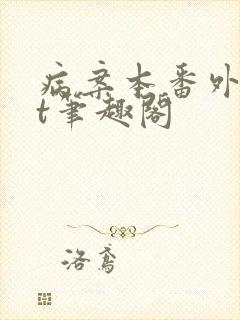 病案本番外
t笔趣阁
洛鸢